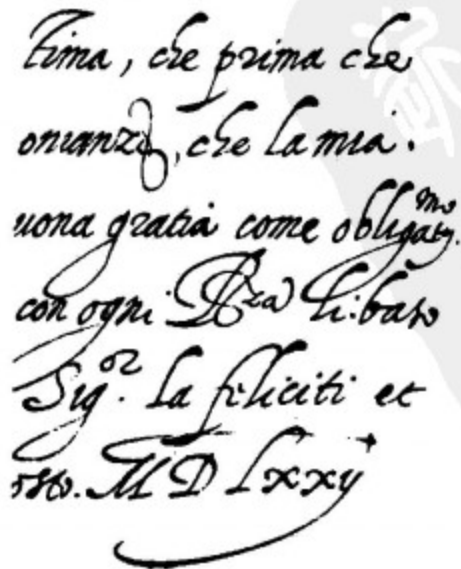 tima, che prima che
onianza, che la mia.
uona gratia come obligatmo.
con ogni Rza li bascio
Sigor. la feliciti et
sto. M D Lxxij